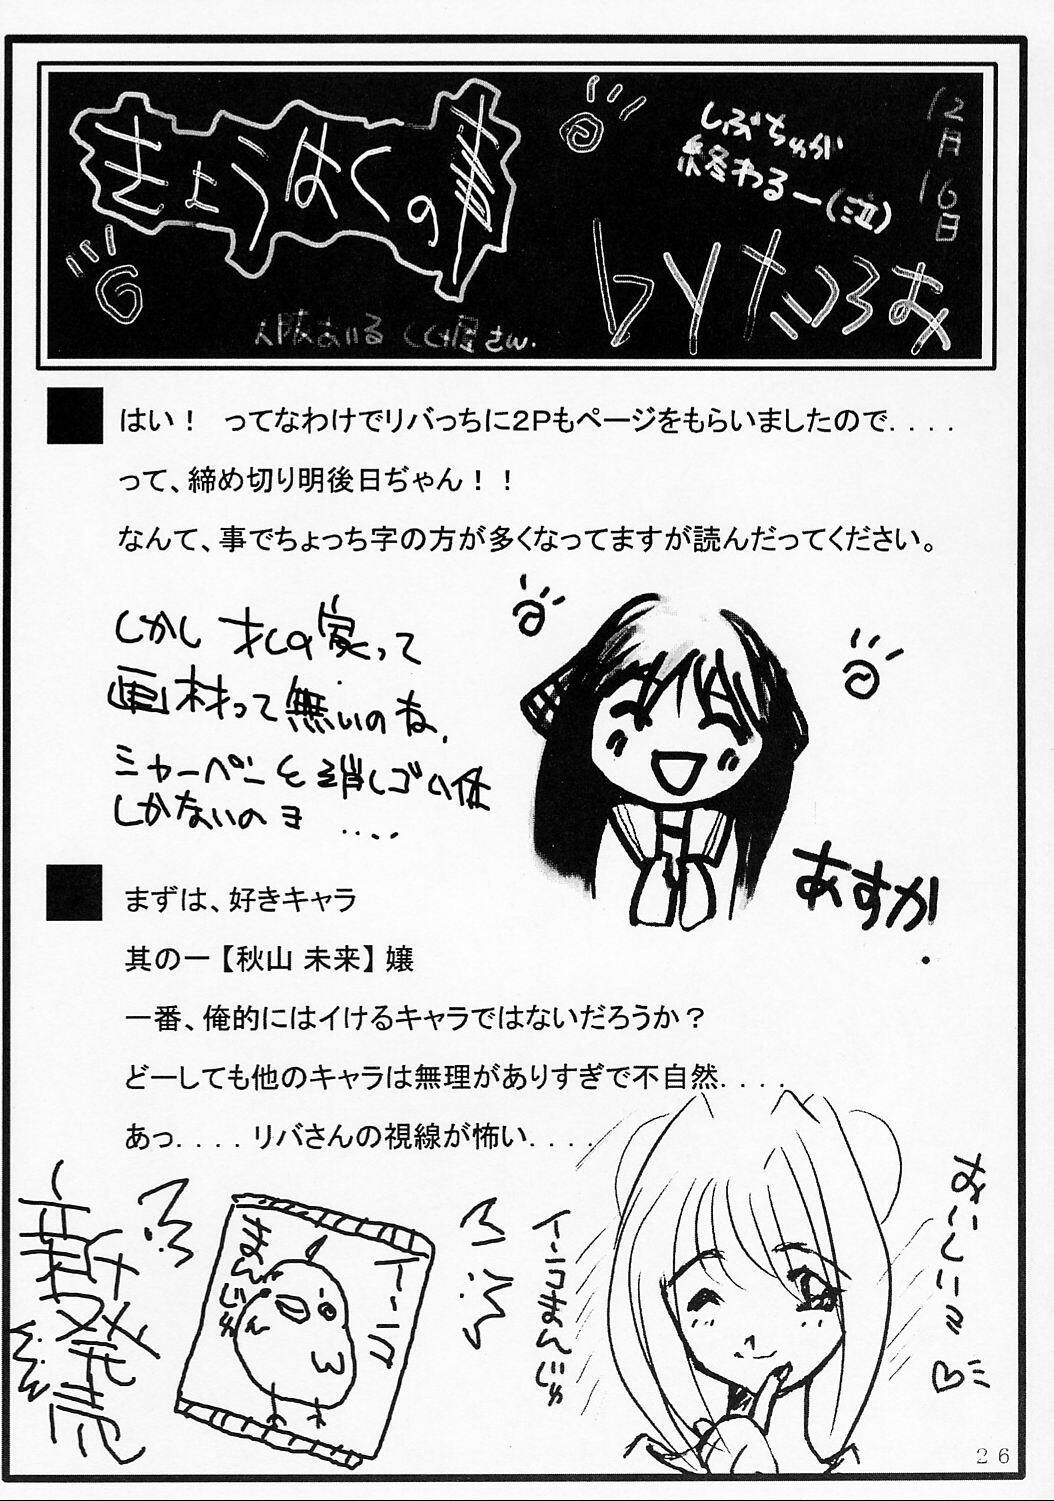 きょうはくの事
しぶちゅが
終わるー(泣)
12月16日
byたつろお
はい！　ってなわけでリバっちに２Ｐもページをもらいましたので．．．．
って、締め切り明後日ぢゃん！！
なんて、事でちょっち字の方が多くなってますが読んだってください。
しかし オレの家って
画材って無いのね、
ミャーペンと消しゴム位
しかないのョ ‥‥
あすか
まずは、好きキャラ
其の一【秋山 未来】嬢
一番、俺的にはイけるキャラではないだろうか？
どーしても他のキャラは無理がありすぎで不自然．．．．
あっ．．．．リバさんの視線が怖い．．．．
新発売
インコ
まんじゅう
インコまんじゅ
おいしい
26